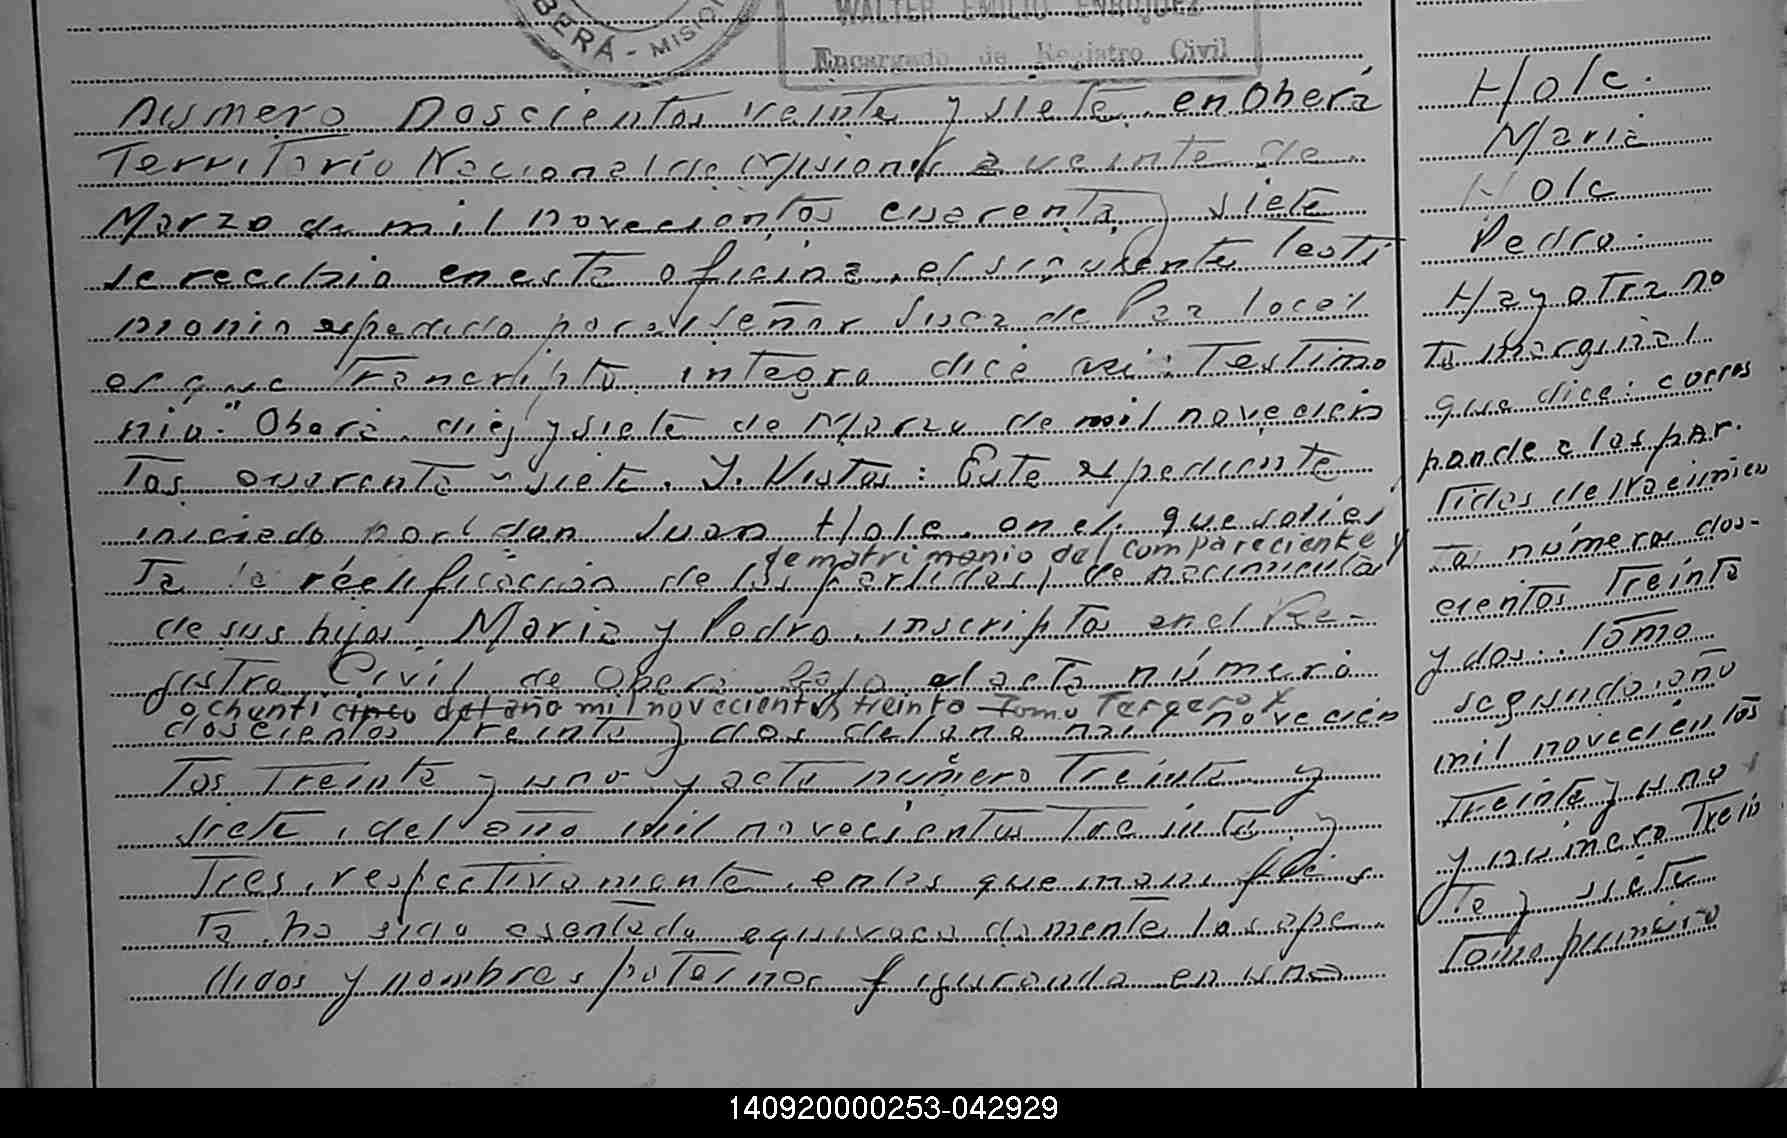 BERÁ - MISION
WALTER EMILIO ENRIQUEZ
Encargado de Registro Civil
Número Doscientos veinte y siete. en Oberá
Territorio Nacional de Misiones a veinte de
Marzo de mil novecientos cuarenta y siete
se recibio en esta oficina, el siguiente testi
monio espedido por el señor Juez de Paz local
el que transcripto integro dice asi: Testimo
nio." Oberá, diez y siete de Marzo de mil novecien
tos cuarenta y siete. Y. Vistos: Este espediente
iniciado por don Juan Holc, en el que solici
ta la rectificación de las partidas, de nacimiento
de matrimonio del compareciente y
de sus hijos Maria y Pedro, inscriptos en el Re-
gistro Civil de Oberá bajo el acta número
ochenti cinco del año mil novecientos treinta Tomo Tercero
doscientos treinta y dos del año mil novecien
tos treinta y uno y acta número treinta y
siete, del año mil novecientos treinta y
tres, respectivamente, en las que manifies
ta ha sido asentado equivocadamente los ape
llidos y nombres paternos figurando en una
Holc.
Maria
Holc
Pedro.
Hay otra no
ta marginal
que dice: corres
ponde a las par.
tidas de nacimien
to números dos-
cientos treinta
y dos.. Tomo
segundo año
mil novecientos
treinta y uno
y número trein
ta y siete
Tomo primero
140920000253-042929